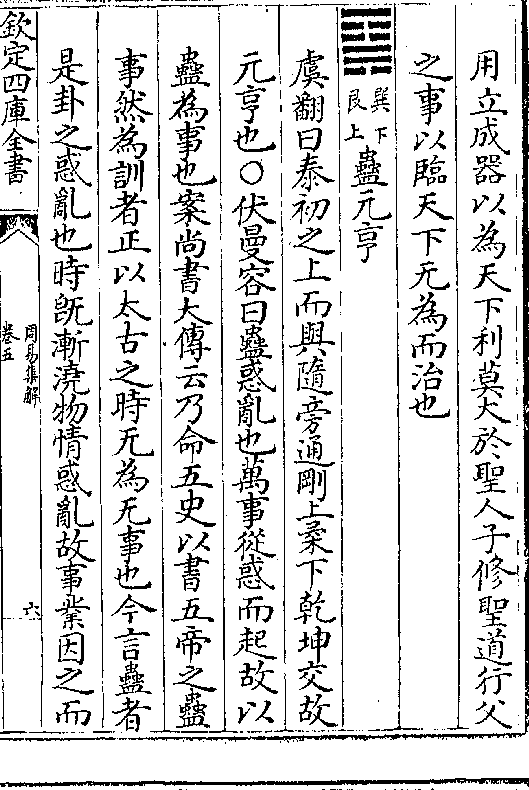 用立成器以為天下利莫大於聖人子修聖道行父
之事以臨天下无為而治也
巽下
艮上
蠱元亨
虞翻曰泰初之上而與隨旁通剛上柔下乾坤交故
元亨也〇伏曼容曰蠱惑亂也萬事從惑而起故以
蠱為事也案尚書大傳云乃命五史以書五帝之蠱
事然為訓者正以太古之時无為无事也今言蠱者
是卦之惑亂也時既漸澆物情惑亂故事業因之而
欽定四庫全書
周易集解
卷五
六